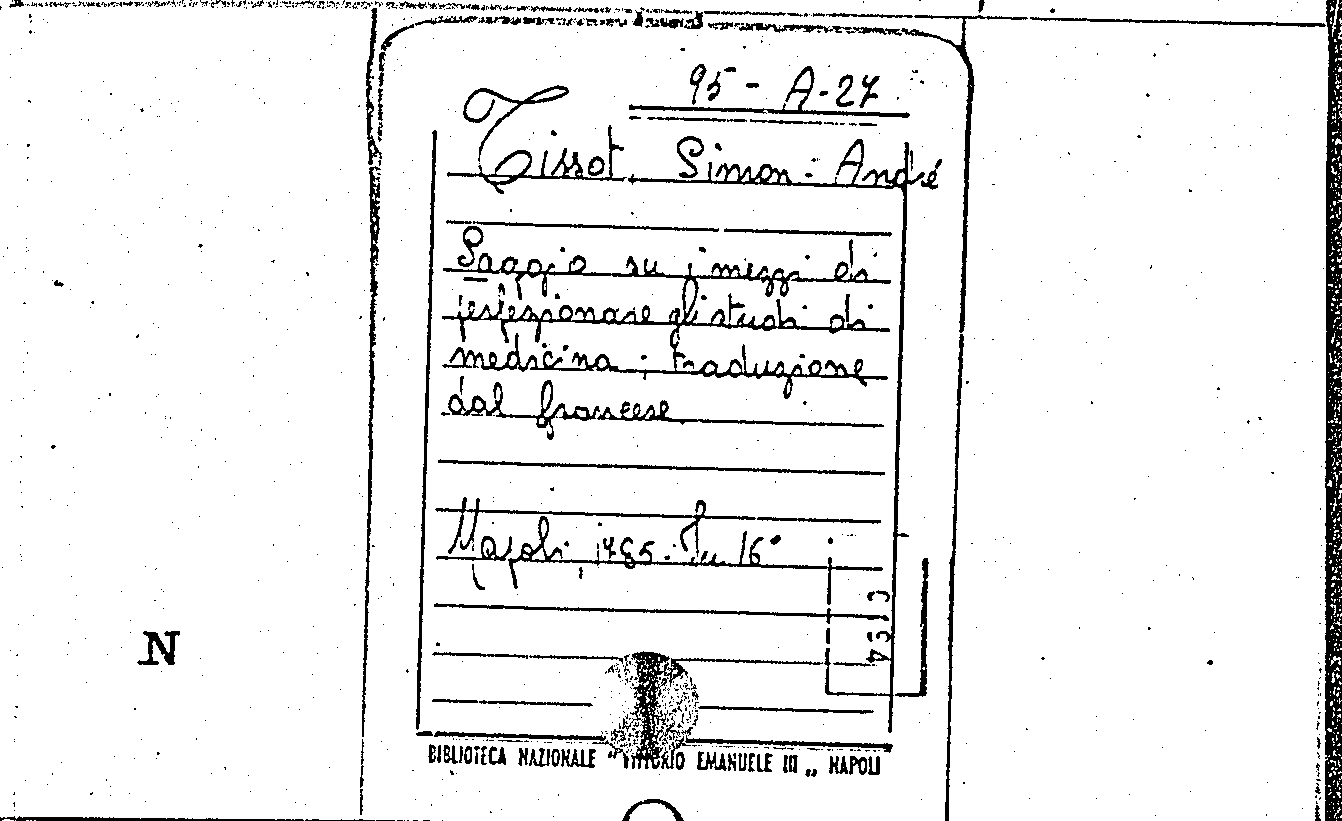 95 - A-27
Tissot, Simon-André
Saggio su i mezzi di
perfezionare gli studi di
medicina; traduzione
dal francese
Napoli, 1785. In 16°
C 134
N
BIBLIOTECA NAZIONALE "VITTORIO EMANUELE III„ NAPOLI